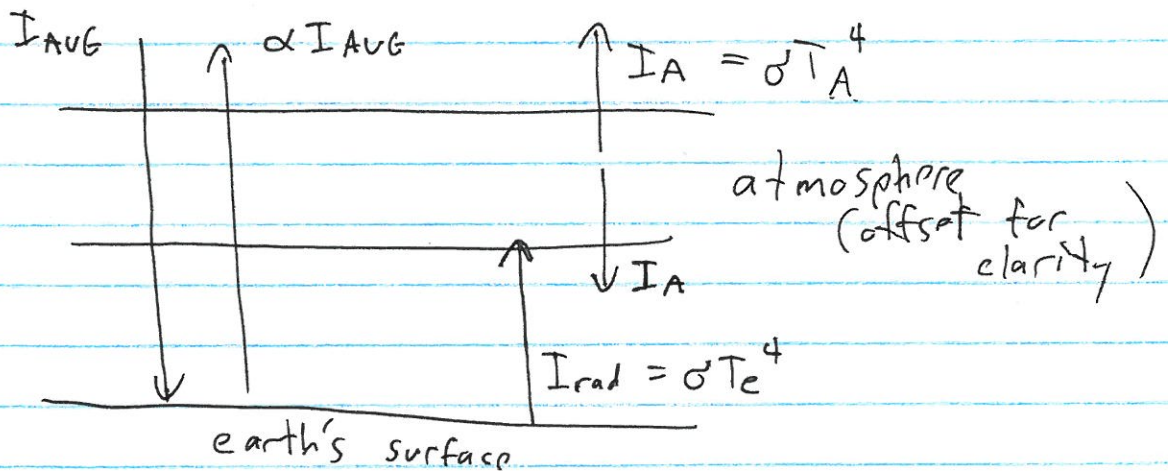 I AVG α I AVG I A = σ T A 4
atmosphere
(offset for
clarity)
I A
I rad = σ T e 4
earth's surface